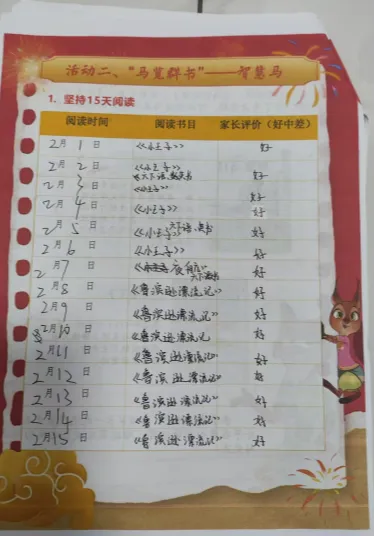 活动二、“马览群书”——智慧马
1. 坚持15天阅读
阅读时间 阅读书目 家长评价（好中差）
2月1日 《小王子》 好
2月2日 《小王子》
2月3日 天下语、 好
《小王子》
2月4日 《小王子》 好
2月5日 《小王子》天下语、 好
2月6日 《小王子》 好
2月7日 夜航》 好
2月8日 《鲁滨逊漂流记》 好
2月9日 《鲁滨逊漂流记》 好
2月10日 《鲁滨逊漂流记 好
2月11日 《鲁滨逊漂流记》 好
2月12日 《鲁滨逊漂流记》 好
2月13日 《鲁滨逊漂流记》 好
2月14日 《鲁滨逊漂流记》 好
2月15日 《鲁滨逊漂流记》 好